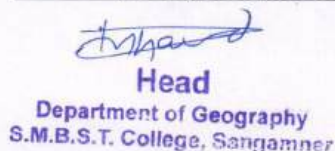 Head
Department of Geography
S.M.B.S.T. College, Sangamner